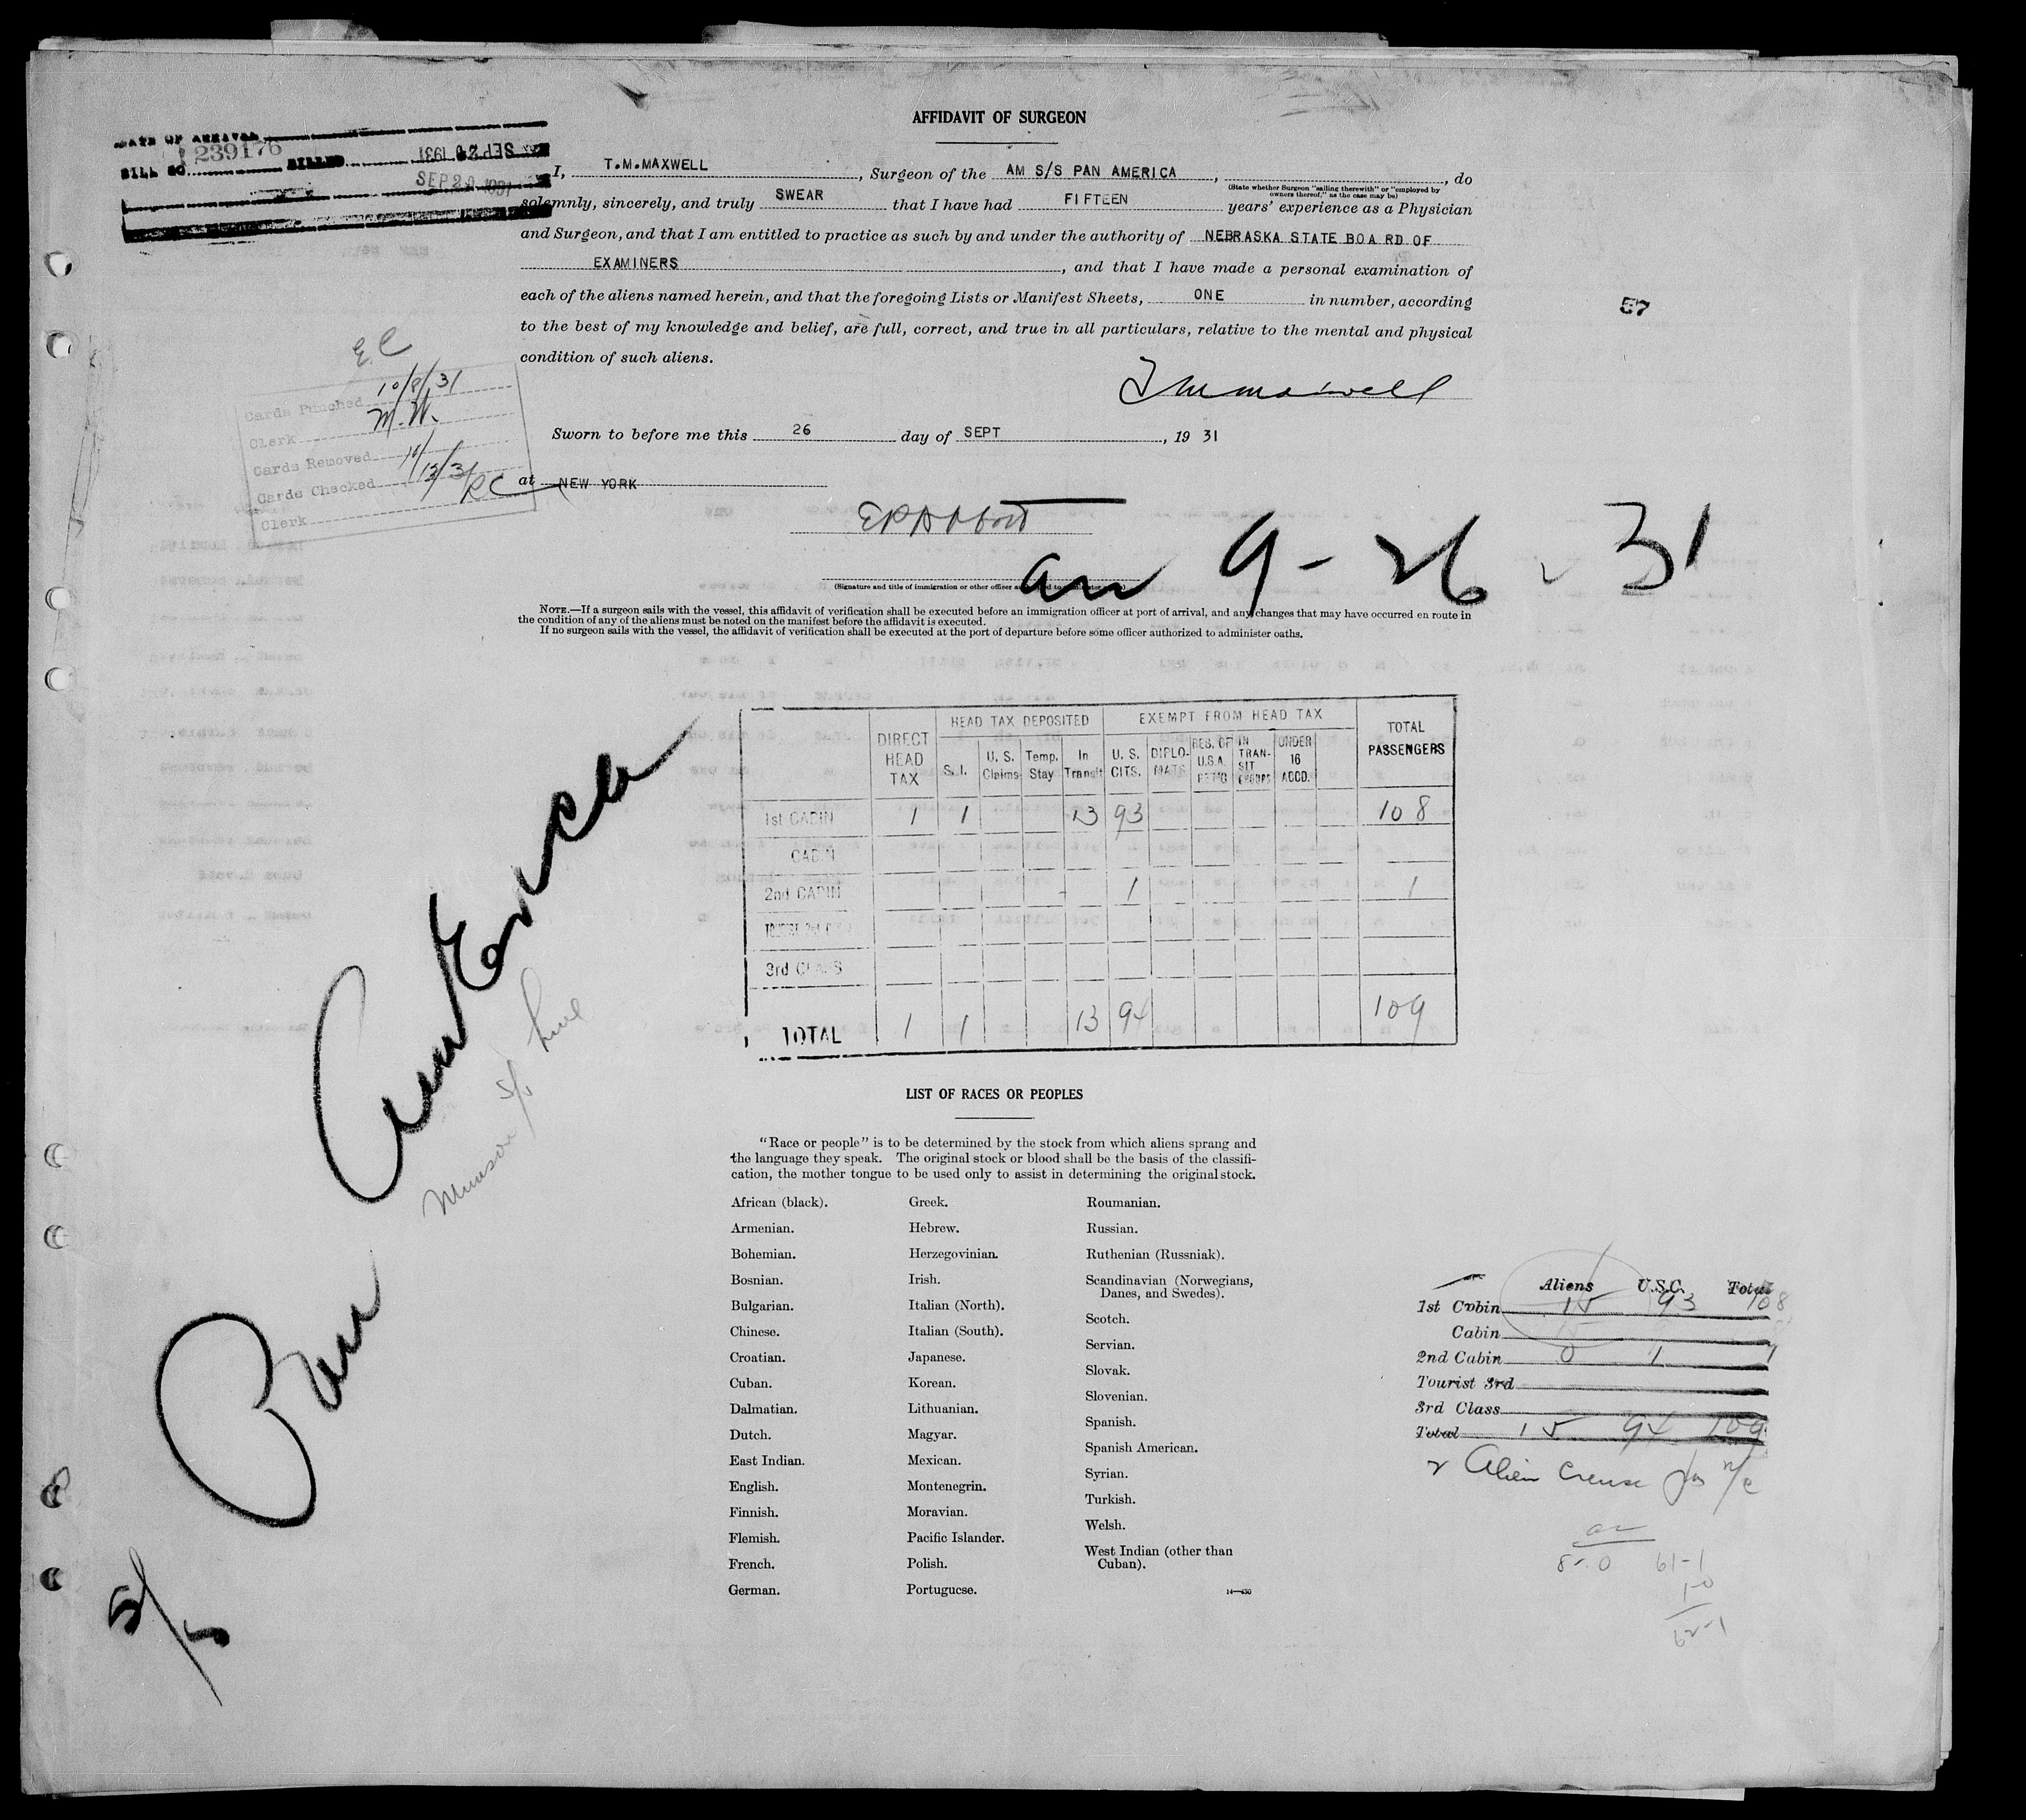 AFFIDAVIT OF SURGEON
DATE OF ARRIVAL
239176
BILL NO. BILLED SEP 20 1931
SEP 20 1931
I, T.M.MAXWELL, Surgeon of the AM S/S PAN AMERICA, , do
(State whether Surgeon "sailing therewith" or "employed by owners thereof," as the case may be)
solemnly, sincerely, and truly SWEAR that I have had FIFTEEN years' experience as a Physician
and Surgeon, and that I am entitled to practice as such by and under the authority of NEBRASKA STATE BOA RD OF
EXAMINERS , and that I have made a personal examination of
each of the aliens named herein, and that the foregoing Lists or Manifest Sheets, ONE in number, according
to the best of my knowledge and belief, are full, correct, and true in all particulars, relative to the mental and physical
condition of such aliens.
57
TMMaxwell
E.C
Cards Punched 10/8/31
Clerk M.W.
Cards Removed
Cards Checked 10/13/31
Clerk RC
Sworn to before me this 26 day of SEPT , 19 31
at NEW YORK
arr 9-26-31
(Signature and title of immigration or other officer
NOTE.—If a surgeon sails with the vessel, this affidavit of verification shall be executed before an immigration officer at port of arrival, and any changes that may have occurred en route in
the condition of any of the aliens must be noted on the manifest before the affidavit is executed.
If no surgeon sails with the vessel, the affidavit of verification shall be executed at the port of departure before some officer authorized to administer oaths.
DIRECT HEAD TAX HEAD TAX DEPOSITED EXEMPT FROM HEAD TAX TOTAL PASSENGERS
S.I. U. S. Claims Temp. Stay In Transit U. S. CITS. DIPLO-MATS RES. OF U.S.A. RETNG IN TRAN-SIT UNDER 16 ACCD.
1st CABIN 1 1 13 93 108
CABIN
2nd CABIN 1 1
TOURIST
3rd CLASS
TOTAL 1 1 13 94 109
Pan America
Munson S/S Line
5/5
LIST OF RACES OR PEOPLES
"Race or people" is to be determined by the stock from which aliens sprang and
the language they speak. The original stock or blood shall be the basis of the classifi-
cation, the mother tongue to be used only to assist in determining the original stock.
African (black). Greek. Roumanian.
Armenian. Hebrew. Russian.
Bohemian. Herzegovinian. Ruthenian (Russniak).
Bosnian. Irish. Scandinavian (Norwegians, Danes, and Swedes).
Bulgarian. Italian (North). Scotch.
Chinese. Italian (South). Servian.
Croatian. Japanese. Slovak.
Cuban. Korean. Slovenian.
Dalmatian. Lithuanian. Spanish.
Dutch. Magyar. Spanish American.
East Indian. Mexican. Syrian.
English. Montenegrin. Turkish.
Finnish. Moravian. Welsh.
Flemish. Pacific Islander. West Indian (other than Cuban).
French. Polish.
German. Portuguese.
14—430
Aliens U.S.C. Total
1st Cabin 15 93 108
Cabin
2nd Cabin 0 1 1
Tourist 3rd
3rd Class
Total 15 94 109
61-1
1-0
62-1